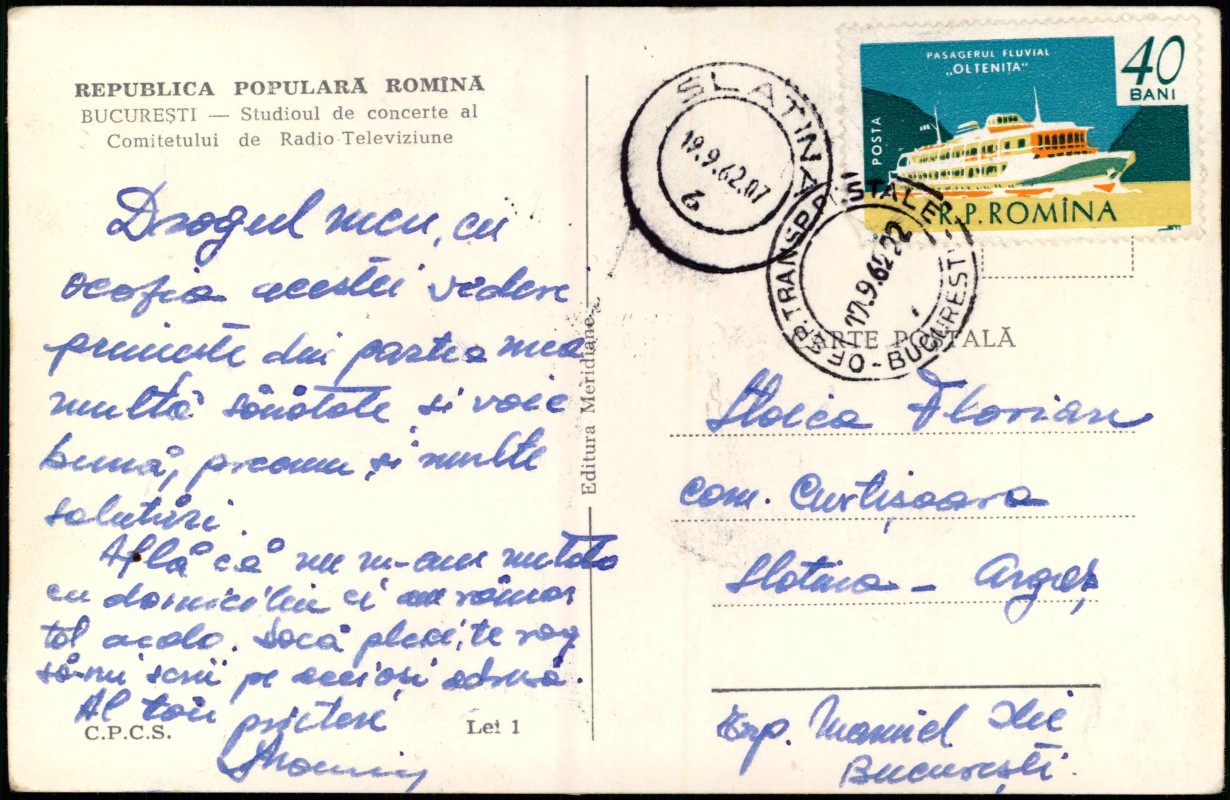 REPUBLICA POPULARĂ ROMÎNĂ
BUCUREȘTI — Studioul de concerte al
Comitetului de Radio-Televiziune
Dragul meu, cu
ocazia acestei vedere
primește din partea mea
multă sănătate și voie
bună, precum și multe
salutări.
Află că nu m-am mutat
cu domiciliu ci am rămas
tot acolo. Dacă pleci, te rog
să-mi scrii pe aceiași adresă.
Al tău prieten
C.P.C.S.
Lei 1
Editura Meridiane
SLATINA
19.9.62.07
6
OF.SP.TRANSP.POȘTALE
17.9.62.22
BUCUREȘTI
PASAGERUL FLUVIAL
„OLTENIȚA”
40
BANI
POSTA
R.P.ROMÎNA
CARTE POȘTALĂ
Stoica Florian
com. Curtișoara
Slatina - Argeș
Exp. Manuil Ilie
București.